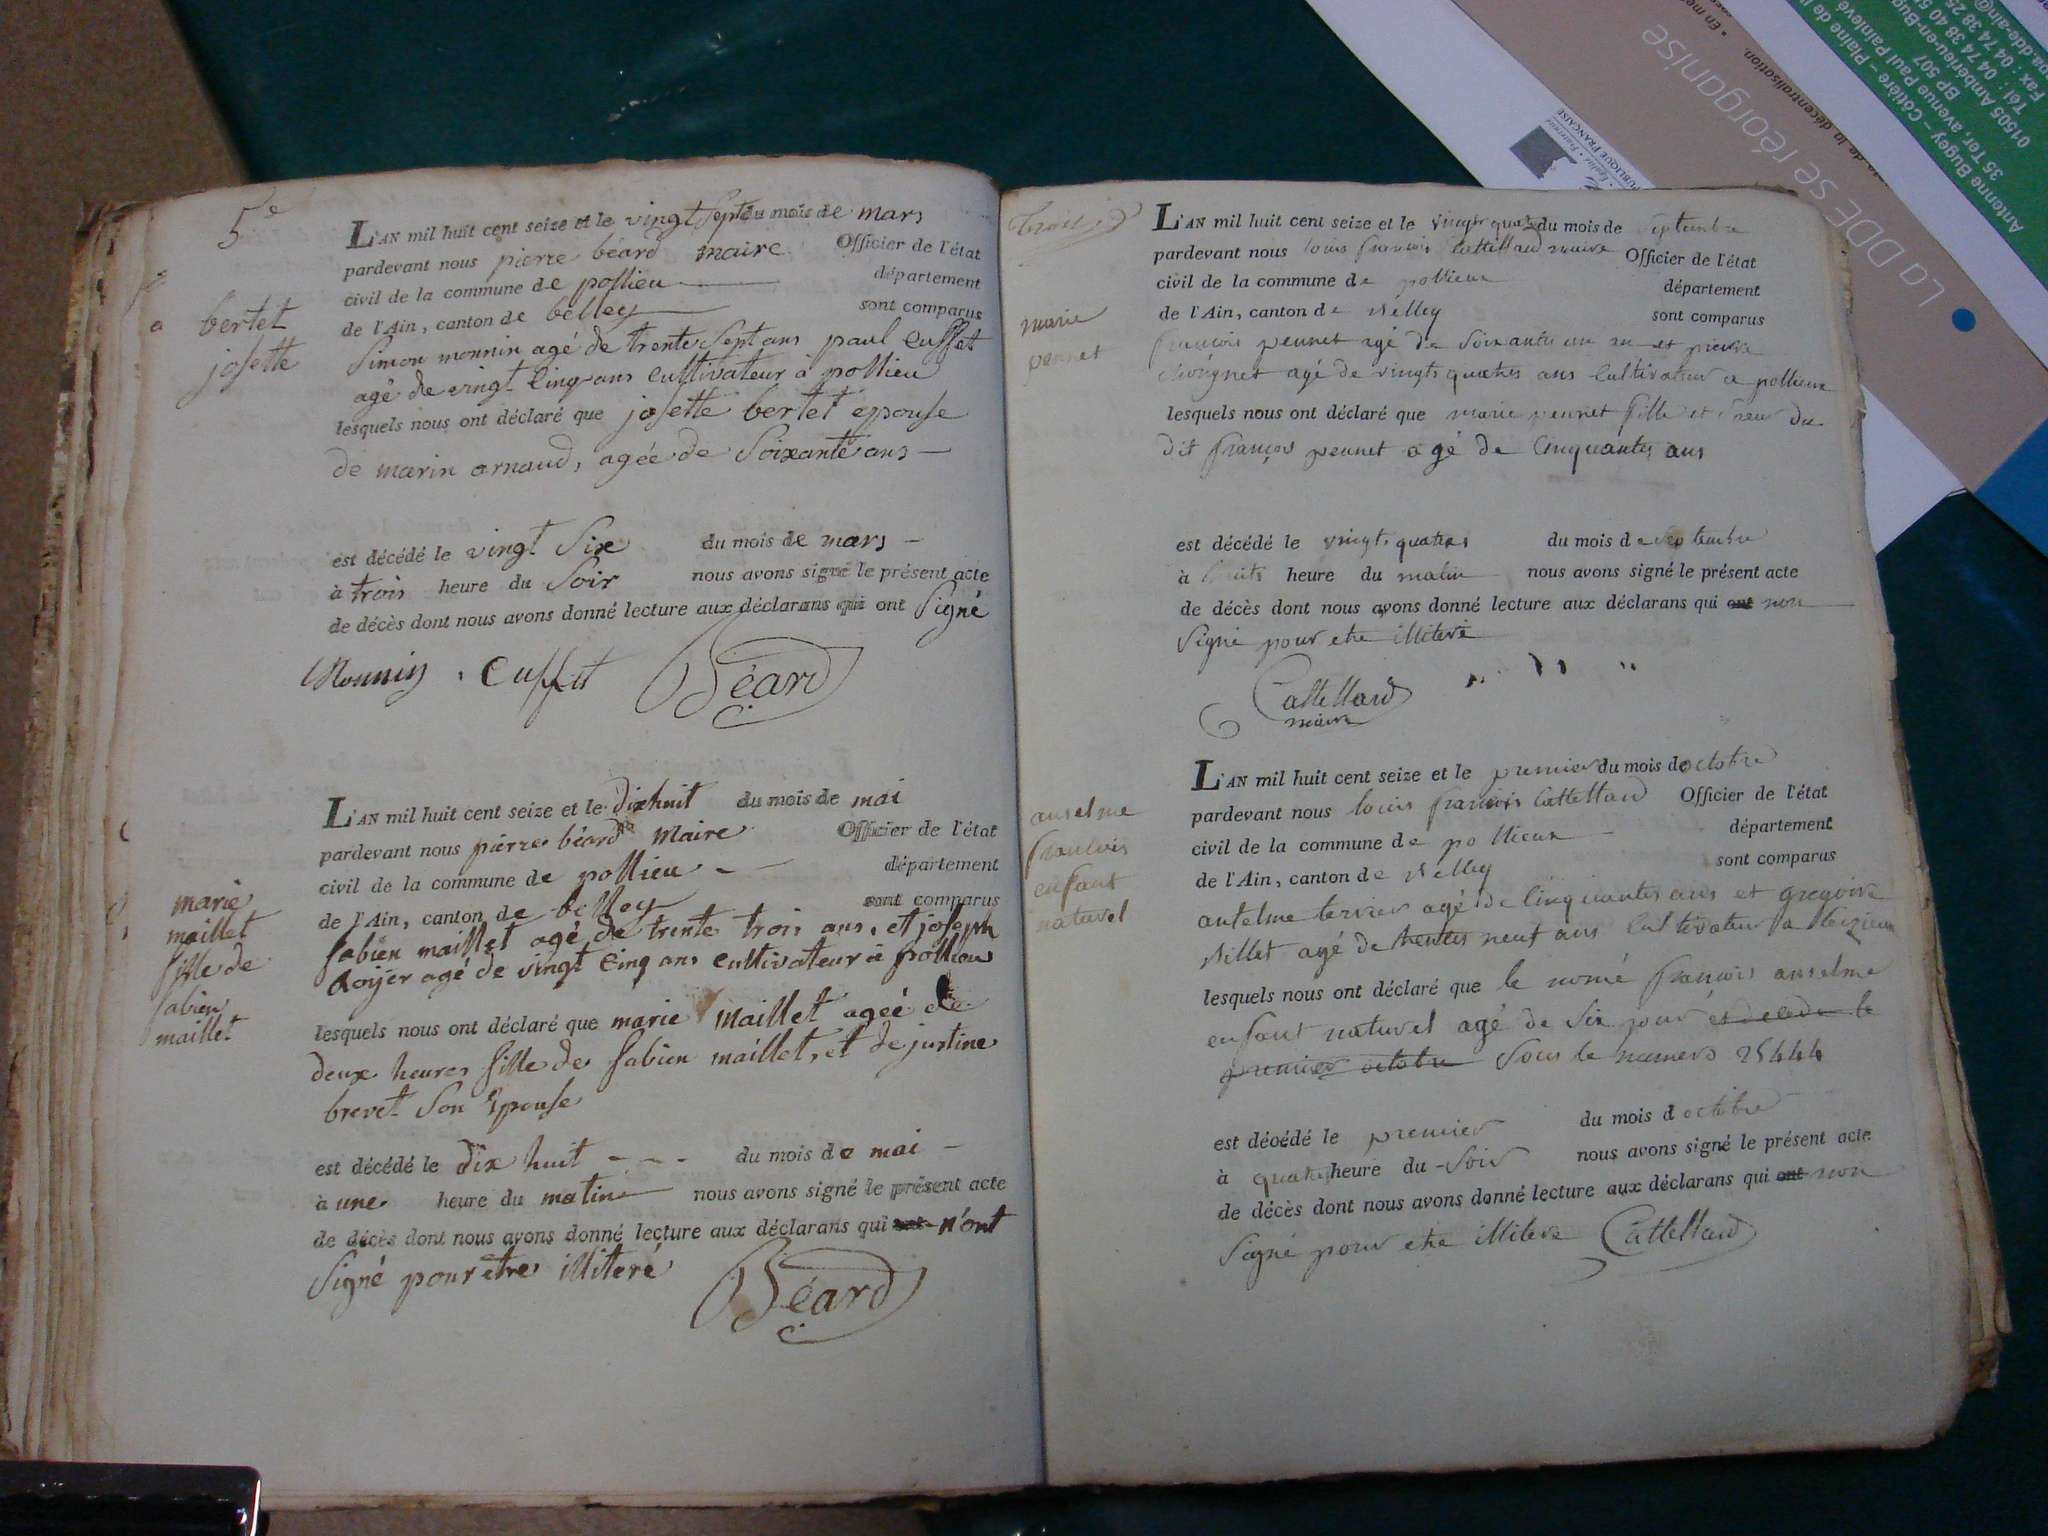 5e
bertet
josette
L'AN mil huit cent seize et le vingt Sept du mois de mars
pardevant nous pierre béard maire Officier de l'état
civil de la commune de pollieu département
de l'Ain, canton de belley sont comparus
Simon monnin agé de trente Sept ans paul Cuffet
agé de vingt Cinq ans Cultivateur à pollieu
lesquels nous ont déclaré que josette bertet epouse
de marin arnaud, agée de Soixante ans
est décédé le vingt Six du mois de mars
à trois heure du Soir nous avons signé le présent acte
de décès dont nous avons donné lecture aux déclarans qui ont Signé
Monnin Cuffet Béard
marie
maillet
fille de
fabien
maillet
L'AN mil huit cent seize et le dixhuit du mois de mai
pardevant nous pierre béard maire Officier de l'état
civil de la commune de pollieu département
de l'Ain, canton de belley sont comparus
fabien maillet agé de trente trois ans, et joseph
Royer agé de vingt Cinq ans cultivateur à pollieu
lesquels nous ont déclaré que marie maillet ageé de
deux heures fille de fabien maillet, et de justine
brevet Son Epouse
est décédé le dix huit du mois de mai
à une heure du matin nous avons signé le présent acte
de décès dont nous avons donné lecture aux déclarans qui ont n'ont
Signé pour etre illiteré
Béard
marie
pennet
L'AN mil huit cent seize et le vingt quatre du mois de Septembre
pardevant nous louis françois Cattelland maire Officier de l'état
civil de la commune de pollieux département
de l'Ain, canton de Belley sont comparus
françois pennet agé de Soixante un an et pierre
agé de vingts quatres ans Cultivateur a pollieux
lesquels nous ont déclaré que marie pennet fille et Sœur du
dit françois pennet agé de Cinquantes ans
est décédé le vingts quatres du mois de Septembre
à huits heure du matin nous avons signé le présent acte
de décès dont nous avons donné lecture aux déclarans qui ont non
Signé pour etre illiteré
Cattelland
maire
anselme
francois
enfant
naturel
L'AN mil huit cent seize et le premier du mois de octobre
pardevant nous louis francois Cattelland Officier de l'état
civil de la commune de pollieux département
de l'Ain, canton de Belley sont comparus
antelme terrier agé de Cinquantes ans et gregoire
Billet agé de trentes neuf ans Cultivateur a
lesquels nous ont déclaré que le nomé francois anselme
enfant naturel agé de Six jour est decede le
premier octobre Sous le numero 25444
est décédé le premier du mois d octobre
à quatre heure du Soir nous avons signé le présent acte
de décès dont nous avons donné lecture aux déclarans qui ont non
Signé pour etre illiteré Cattelland
La DDE se réorganise
de la décentralisation.
PUBLIQUE FRANÇAISE
Antenne Bugey – Côtière – Plaine de l
35 Ter, avenue Paul Painlevé
BP 507
01505 Ambérieu-en-Bug
Tél : 04 74 38 40 5
Fax : 04 74 38 25